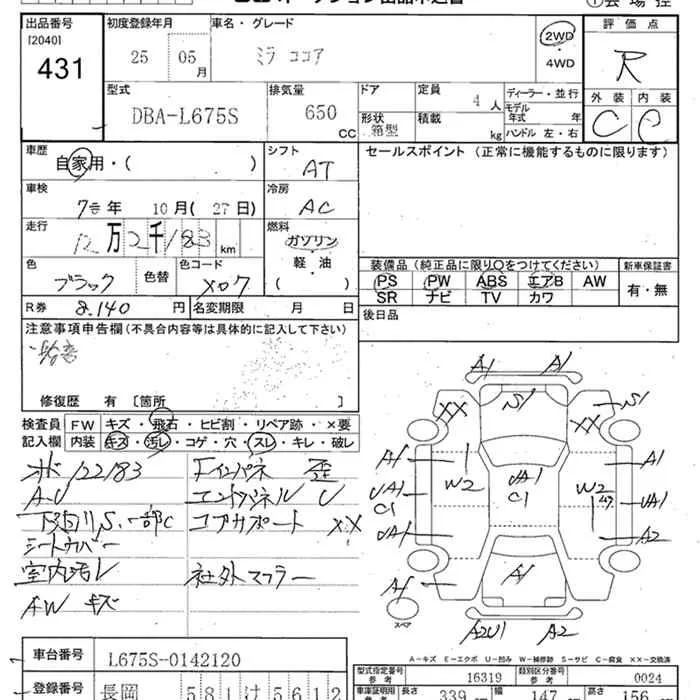 出品番号
[2040]
431
初度登録年月
25 05 月
車名・グレード
ミラ ココア
2WD
・
4WD
評価点
R
外装 内装
C C
型式
DBA-L675S
排気量
650 CC
ドア
形状
箱型
定員
4 人
積載
kg
ディーラー・並行
モデル年式 年
ハンドル 左・右
車歴
自家用・( )
シフト
AT
セールスポイント (正常に機能するものに限ります)
車検
年 10 月 ( 27 日)
冷房
AC
走行
12 万 2 千 183 km
燃料
ガソリン
・
軽・油
( )
色
ブラック
色替
色コード
X07
装備品 (純正品に限り○をつけてください)
PS PW ABS エアB AW
SR ナビ TV カワ
新車保証書
有・無
R券 8,140 円
名変期限 月 日
後日品
注意事項申告欄 (不具合内容等は具体的に記入して下さい)
修復歴 有 〔箇所 〕
検査員記入欄
FW キズ・飛石・ヒビ割・リペア跡・×要
内装 キズ・汚レ・コゲ・穴・スレ・キレ・破レ
122183
A・U
下回りS.一部C
シートカバー
室内汚レ
FW キズ
Fインパネ 歪
エンドパネル U
コアサポート XX
社外マフラー
A1 A1
XX S1 XX S1
A1 A1
W2 W2
UA1 C1
UA1 C1
UA1
UA1 A2
A1
A1
スペア
A2U1 A2
A－キズ E－エクボ U－凹み W－補修跡 S－サビ C－腐食 XX－交換済
車台番号
L675S-0142120
型式指定番号 参考
16319
類別区分番号 参考
0024
登録番号
長岡 581 け 5612
長さ 339 幅 147 高さ 156